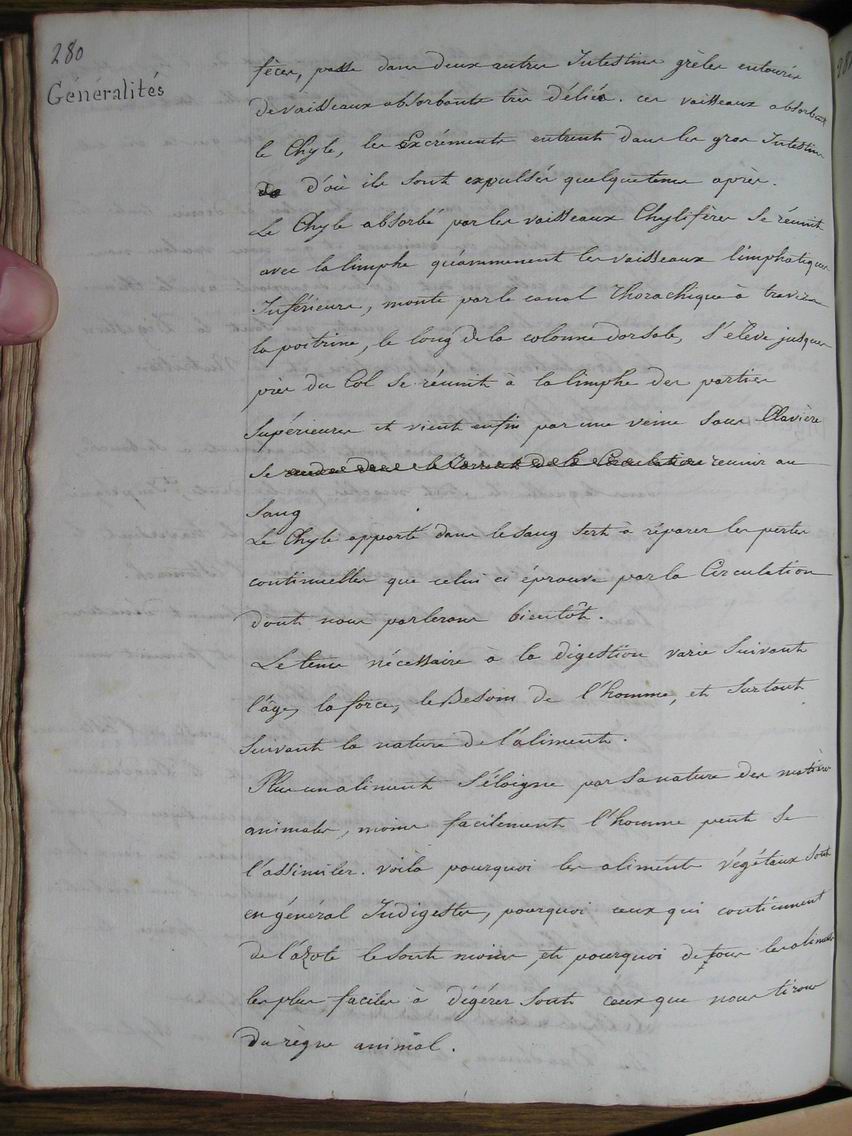 280
Généralités
fèces, passe dans deux autres Intestins grèles entourés
de vaisseaux absorbants très déliés. ces vaisseaux absorbent
le Chyle, les Excréments entrent dans les gros Intestins
d'où ils sont expulsés quelque tems après.
Le Chyle absorbé par les vaisseaux Chylifères se réunit
avec la limphe qu'ammenent les vaisseaux limphatiques
Inférieurs, monte par le canal thorachique à travers
la poitrine, le long de la colonne dorsale, s'élève jusques
près du Col se réunit à la limphe des parties
Supérieures et vient enfin par une veine sous Clavière
se rendre dans le Torrent de la Circulation reunir au
Sang
Le Chyle apporté dans le sang sert à réparer les pertes
continuelles que celui ci éprouve par la Circulation
dont nous parlerons bientôt.
Le tems nécessaire à la digestion varie suivant
l'âge, la force, le Besoin de l'homme, et surtout
suivant la nature de l'aliment.
Plus un aliment s'éloigne par sa nature des matières
animales, moins facilement l'homme peut se
l'assimiler. voilà pourquoi les aliments végétaux sont
en général Indigestes, pourquoi ceux qui contiennent
de l'azote le sont moins, et pourquoi de tous les aliments
les plus faciles à digérer sont ceux que nous tirons
du règne animal.